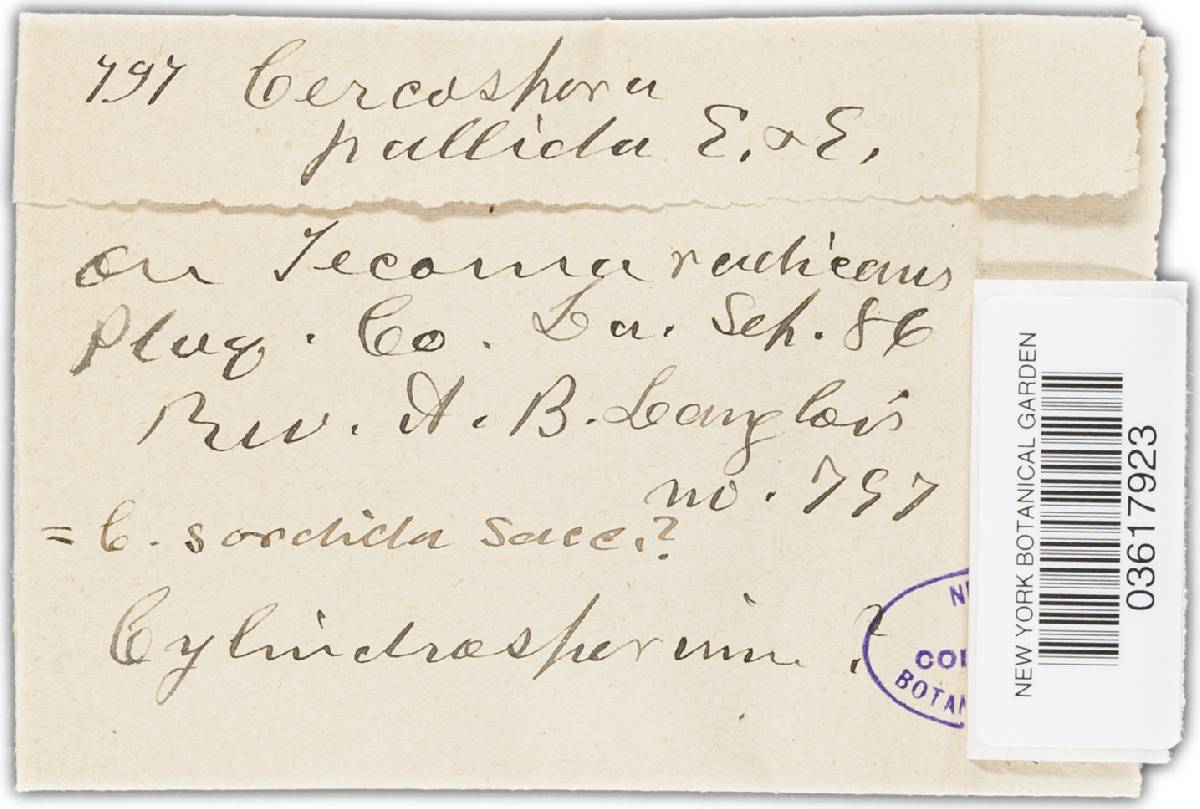 797 Cercospora
pallida E. & E.
on Tecoma radicans
Plaq. Co. La. Sep. 86
Rev. A. B. Langlois
no. 797
= C. sordida Sacc.?
Cylindrosporium ?
NEW YORK BOTANICAL GARDEN
03617923
N
COL
BOTAN